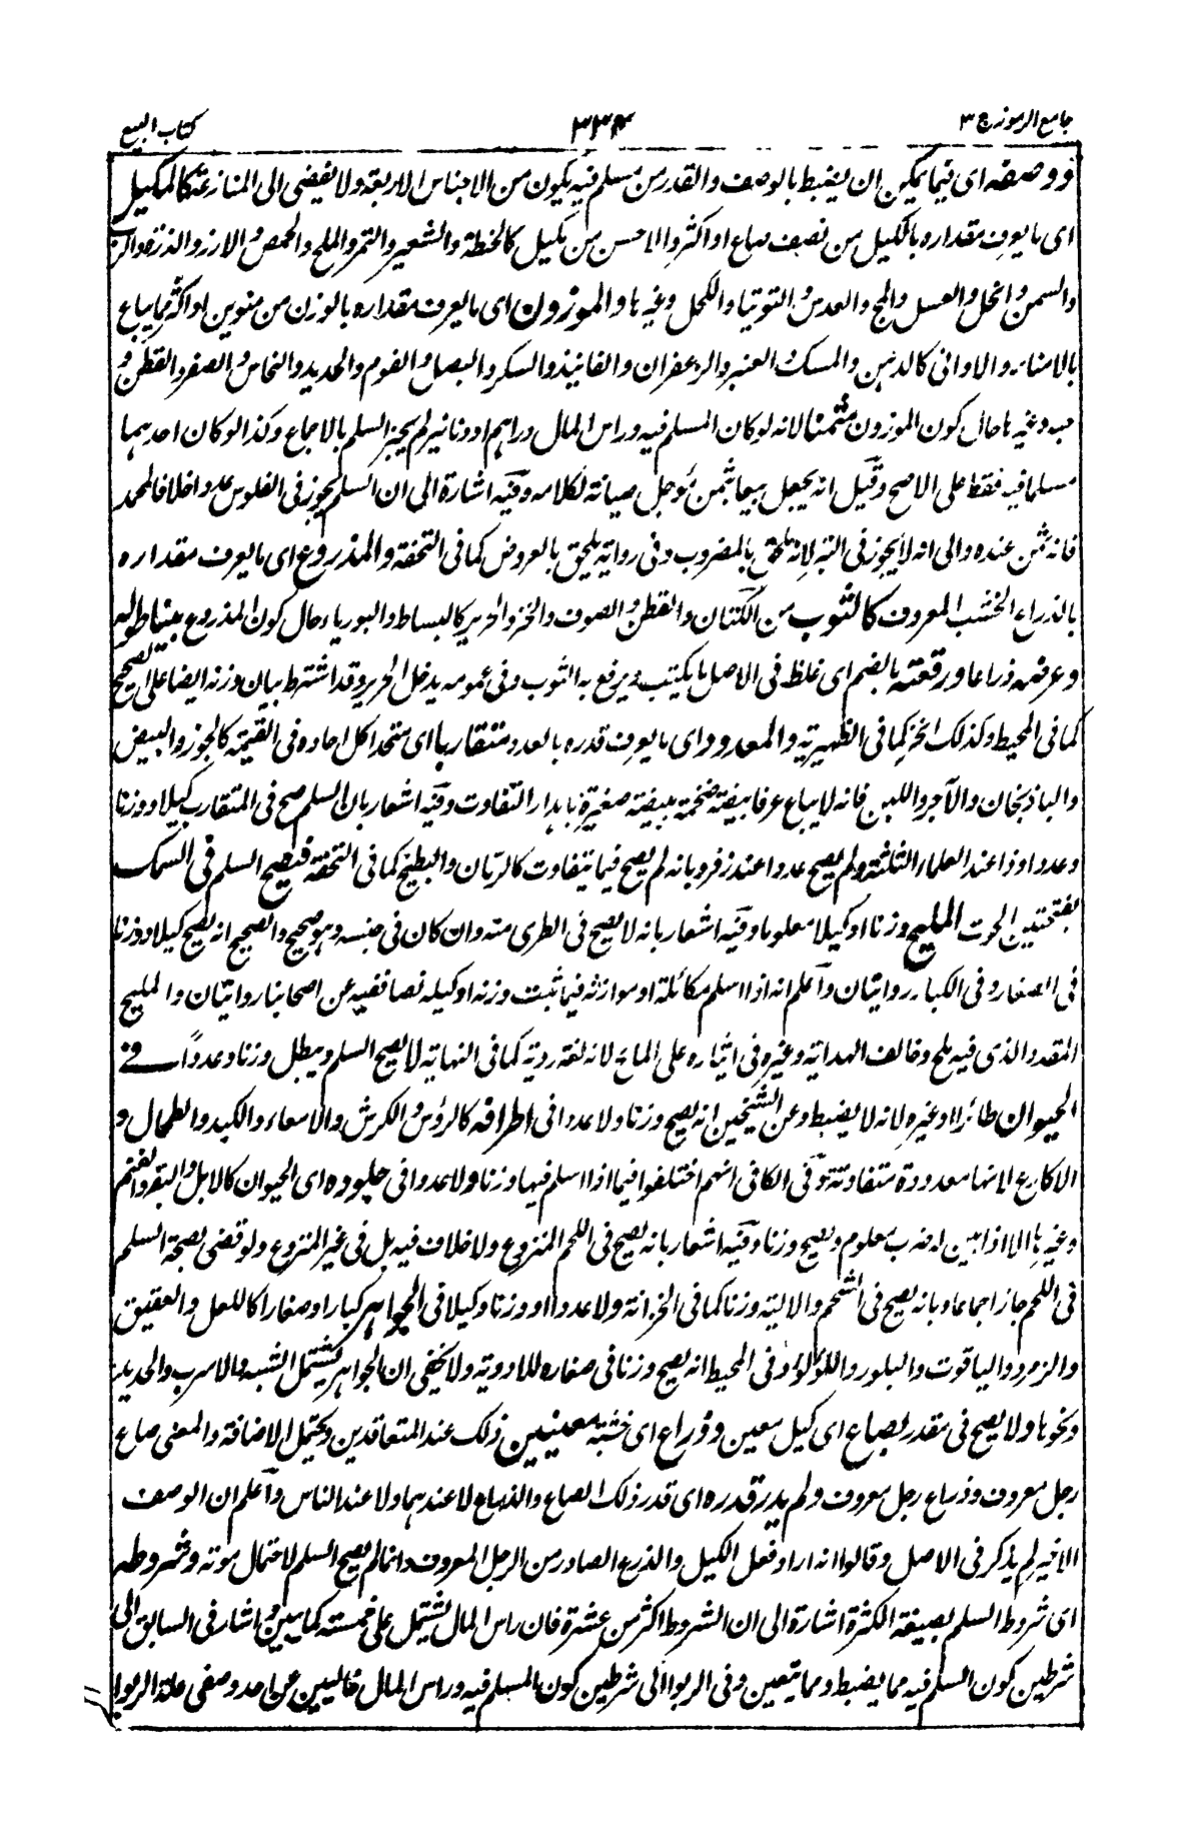 جامع الرموز ج ٣
٣٣٤
كتاب البيع
ووصفه اى فيما يمكن ان يضبط بالوصف والقدر من مسلم فيه يكون من الاجناس الاربعة ولا يفضى الى المنازعة كالمكيل
اى ما يعرف مقداره بالكيل من نصف صاع او اكثر والاحسن من مكيل كالحنطة والشعير والتمر والملح والحمص والارز والذرة
والسمن والخل والعسل والعدس والتوتيا والكحل وغيرها والموزون اى ما يعرف مقداره بالوزن من منوين او اكثر مما يباع
بالامناء والاوانى كالدهن والمسك والعنبر والزعفران والفانيذ والسكر والبصل والفوم والحديد والنحاس والصفر والقطن و
وغيرها حال كون الموزون مثمنا لانه لو كان المسلم فيه وراس المال دراهم او دنانير لم يجز السلم بالاجماع وكذا لو كان احدهما
مسلما فيه فقط على الاصح وقيل انه يجعل بيعا بثمن مؤجل صيانة لكلامه وفيه اشارة الى ان السلم يجوز فى الفلوس عددا خلافا لمحمد
فانه ثمن عنده والى انه لا يجوز فى التبر لانه ملحق بالمضروب وفى رواية يلحق بالعروض كما فى التحفة والمذروع اى ما يعرف مقداره
بالذراع الخشب المعروف كالثوب من الكتان والقطن والصوف والخز والحرير كالبساط والبوريا حال كون المذروع مبينا طوله
وعرضه ذراعا ورقعته بالضم اى غلظ فى الاصل ما يكتب ويرقع به الثوب وفى عمومه يدخل الحرير وقد اشترط بيان وزنه ايضا على الصحيح
كما فى المحيط وكذلك الخز كما فى الظهيرية والمعدود اى ما يعرف قدره بالعدد متقاربا اى متحدا كل احاده فى القيمة كالجوز والبيض
والباذنجان والآجر واللبن فانه لا يباع عرفا بيضة ضخمة ببيضة صغيرة باهدار التفاوت وفيه اشعار بان السلم صح فى المتقارب كيلا ووزنا
وعددا وذا عند العلماء الثلثة ولم يصح عددا عند زفر وبانه لم يصح فيما يتفاوت كالرمان والبطيخ كما فى التحفة فيصح السلم فى السمك
بفتحتين الحوت المليح وزنا او كيلا معلوما وفيه اشعار بانه لا يصح فى الطرى منه وان كان فى جنسه وهو صحيح والصحيح انه يصح كيلا ووزنا
فى الصغار وفى الكبار روايتان واعلم انه اذا اسلم مكائلة او موازنة فيما ثبت وزنه او كيله نصا ففيه عن اصحابنا روايتان والمليح
المقدد الذى فيه ملح وخالف الهداية وغيره فى ايثاره على المالح لانه لغة ردية كما فى النهاية لا يصح السلم ويبطل وزنا وعددا فى
الحيوان طائرا او غيره لانه لا يضبط وعن الشيخين انه يصح وزنا ولا عددا فى اطرافه كالرؤس والكرش والامعاء والكبد والطحال و
الاكارع لانها معدودة متفاوتة وفى الكافى انهم اختلفوا فيما اذا اسلم فيها وزنا ولا عددا فى جلوده اى الحيوان كالابل والبقر والغنم
وغيرها الا اذا بين له ضرب معلوم ويصح وزنا وفيه اشعار بانه يصح فى اللحم المنزوع ولا خلاف فيه بل فى غير المنزوع ولو قضى بصحة السلم
فى اللحم جاز اجماعا وبانه يصح فى الشحم والالية وزنا كما فى الخزانة ولا عددا او وزنا وكيلا فى الجواهر كبارا وصغارا كاللعل والعقيق
والزمرد والياقوت والبلور واللؤلؤ وفى المحيط انه يصح وزنا فى صغاره للادوية ولا يخفى ان الجواهر يشتمل الشبه والاسرب والحديد
ونحوها ولا يصح فى مقدر بصاع اى كيل معين وذراع اى خشبة معينين ذلك عند المتعاقدين ويحتمل الاضافة والمعنى صاع
رجل معروف وذراع رجل معروف ولم يدر قدره اى قدر ذلك الصاع والذراع لا عندهما ولا عند الناس واعلم ان الوصف
الاخير لم يذكر فى الاصل وقالوا انه اراد فعل الكيل والذرع الصادر من الرجل المعروف وانما لم يصح السلم لاحتمال موته وشروطه
اى شروط السلم بصيغة الكثرة اشارة الى ان الشروط اكثر من عشرة فان راس المال يشتمل على خمسة كما يبين واشار فى السابق الى
شرطين كون المسلم فيه مما يضبط ومما يتعين وفى الربوا الى شرطين كون المسلم فيه وراس المال خاليين عن احد وصفى علة الربوا